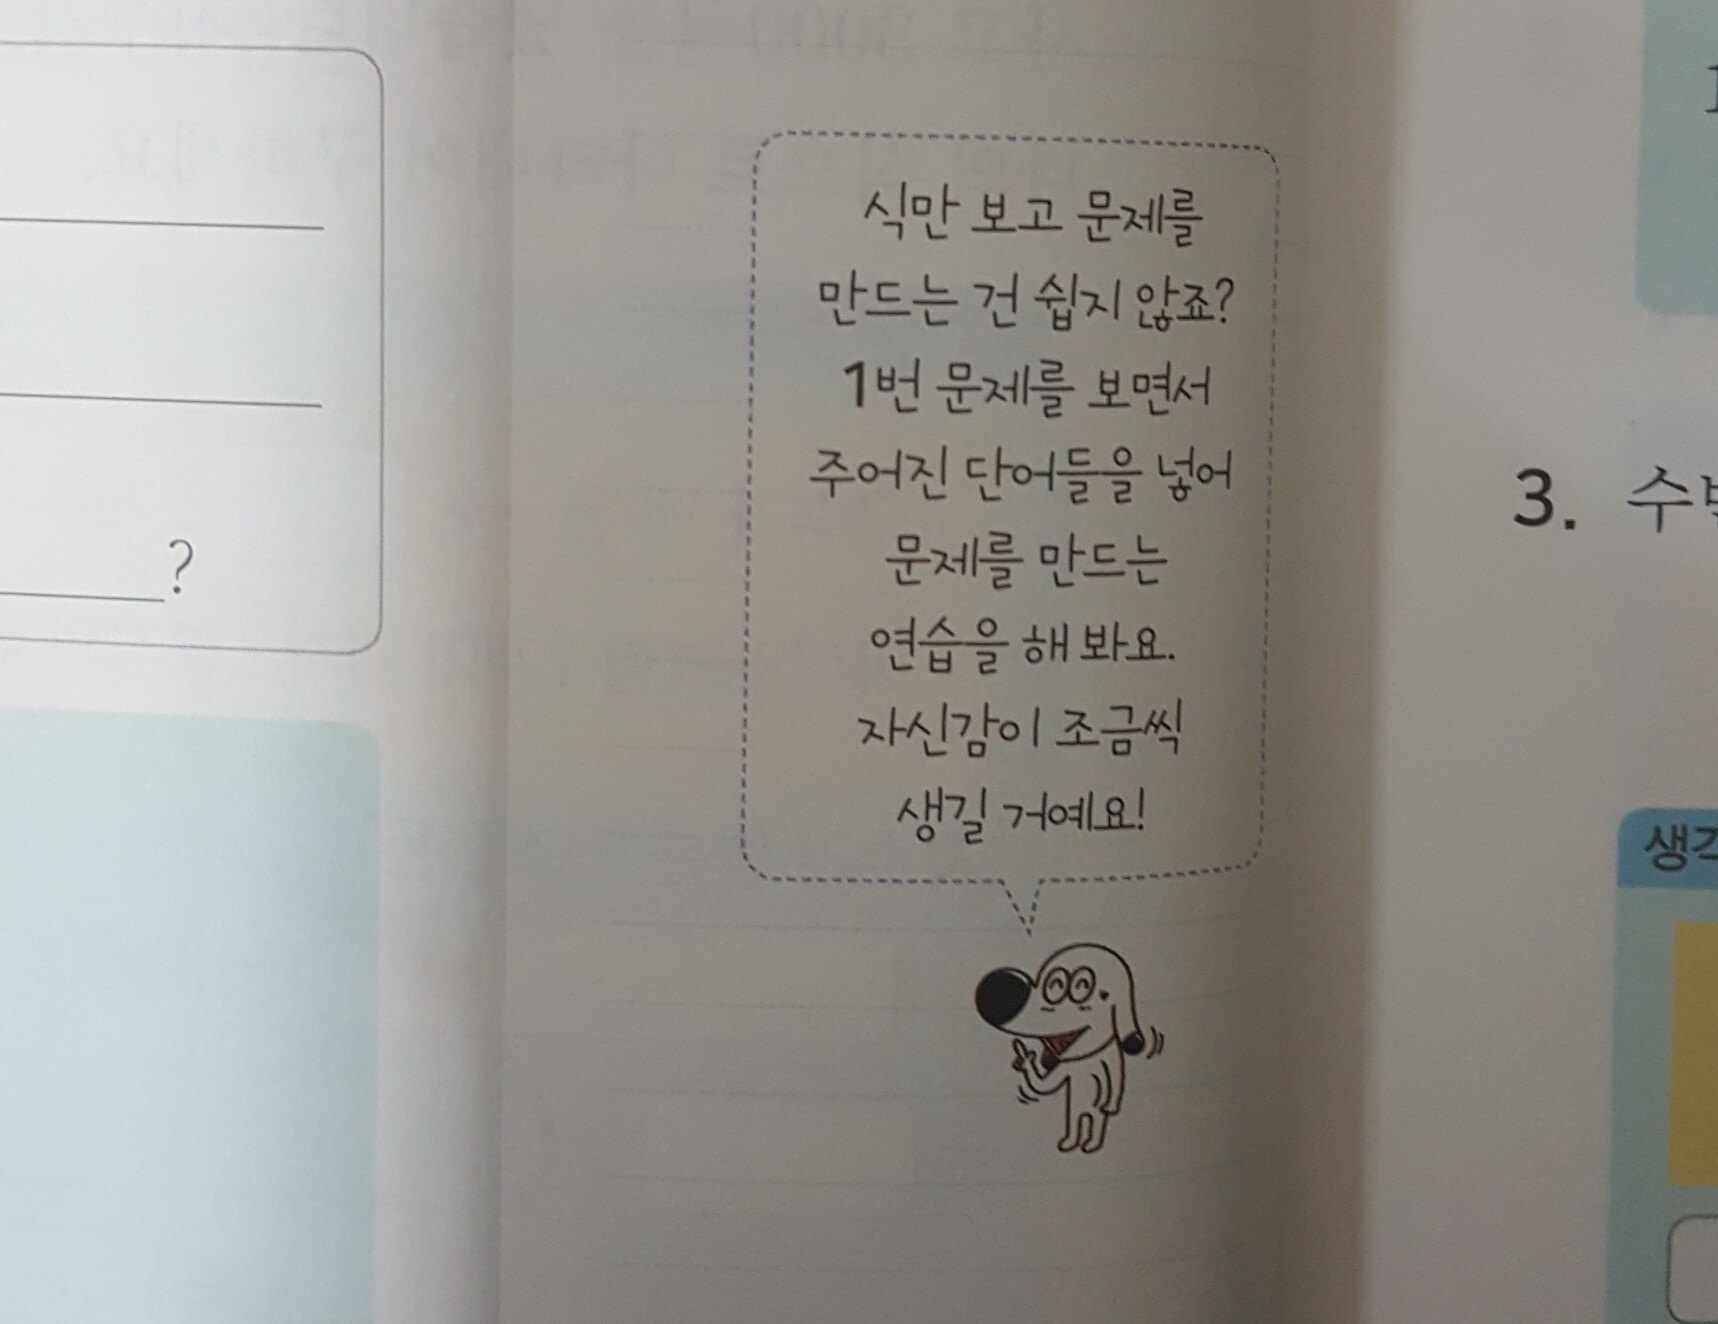 식만 보고 문제를
만드는 건 쉽지 않죠?
1번 문제를 보면서
주어진 단어들을 넣어
문제를 만드는
연습을 해 봐요.
자신감이 조금씩
생길 거예요!
?
3.